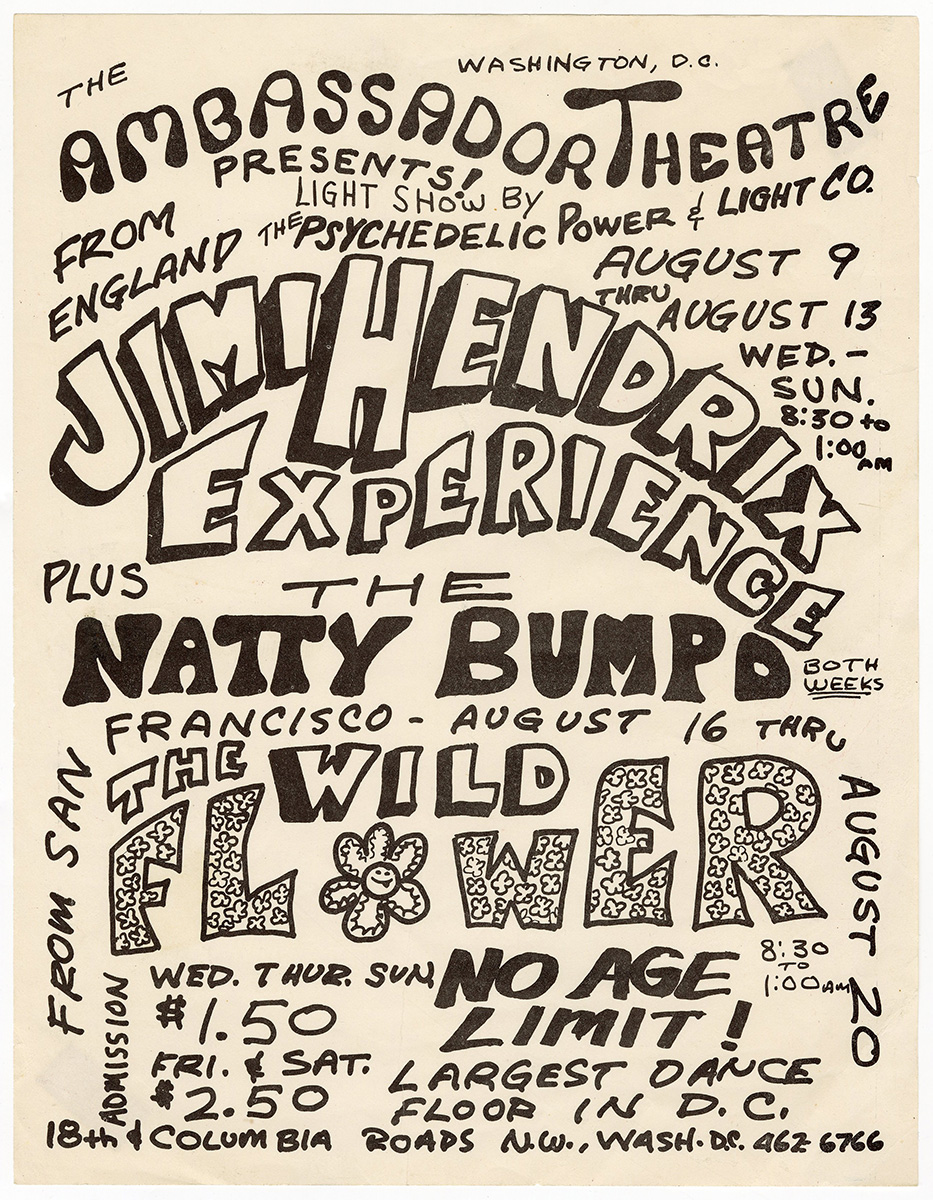 WASHINGTON, D.C.
THE
AMBASSADOR THEATRE
PRESENTS!
LIGHT SHOW BY
THE PSYCHEDELIC POWER & LIGHT CO.
FROM
ENGLAND
AUGUST 9
THRU
AUGUST 13
WED. -
SUN.
8:30 to
1:00 AM
JIMI HENDRIX
EXPERIENCE
PLUS
THE
NATTY BUMPO
BOTH
WEEKS
FROM SAN FRANCISCO - AUGUST 16 THRU AUGUST 20
THE WILD
FLOWER
ADMISSION
WED. THUR. SUN.
$1.50
FRI. & SAT.
$2.50
NO AGE
LIMIT!
8:30
TO
1:00 AM
LARGEST DANCE
FLOOR IN D.C.
18th & COLUMBIA ROADS N.W., WASH. D.C. 462 6766